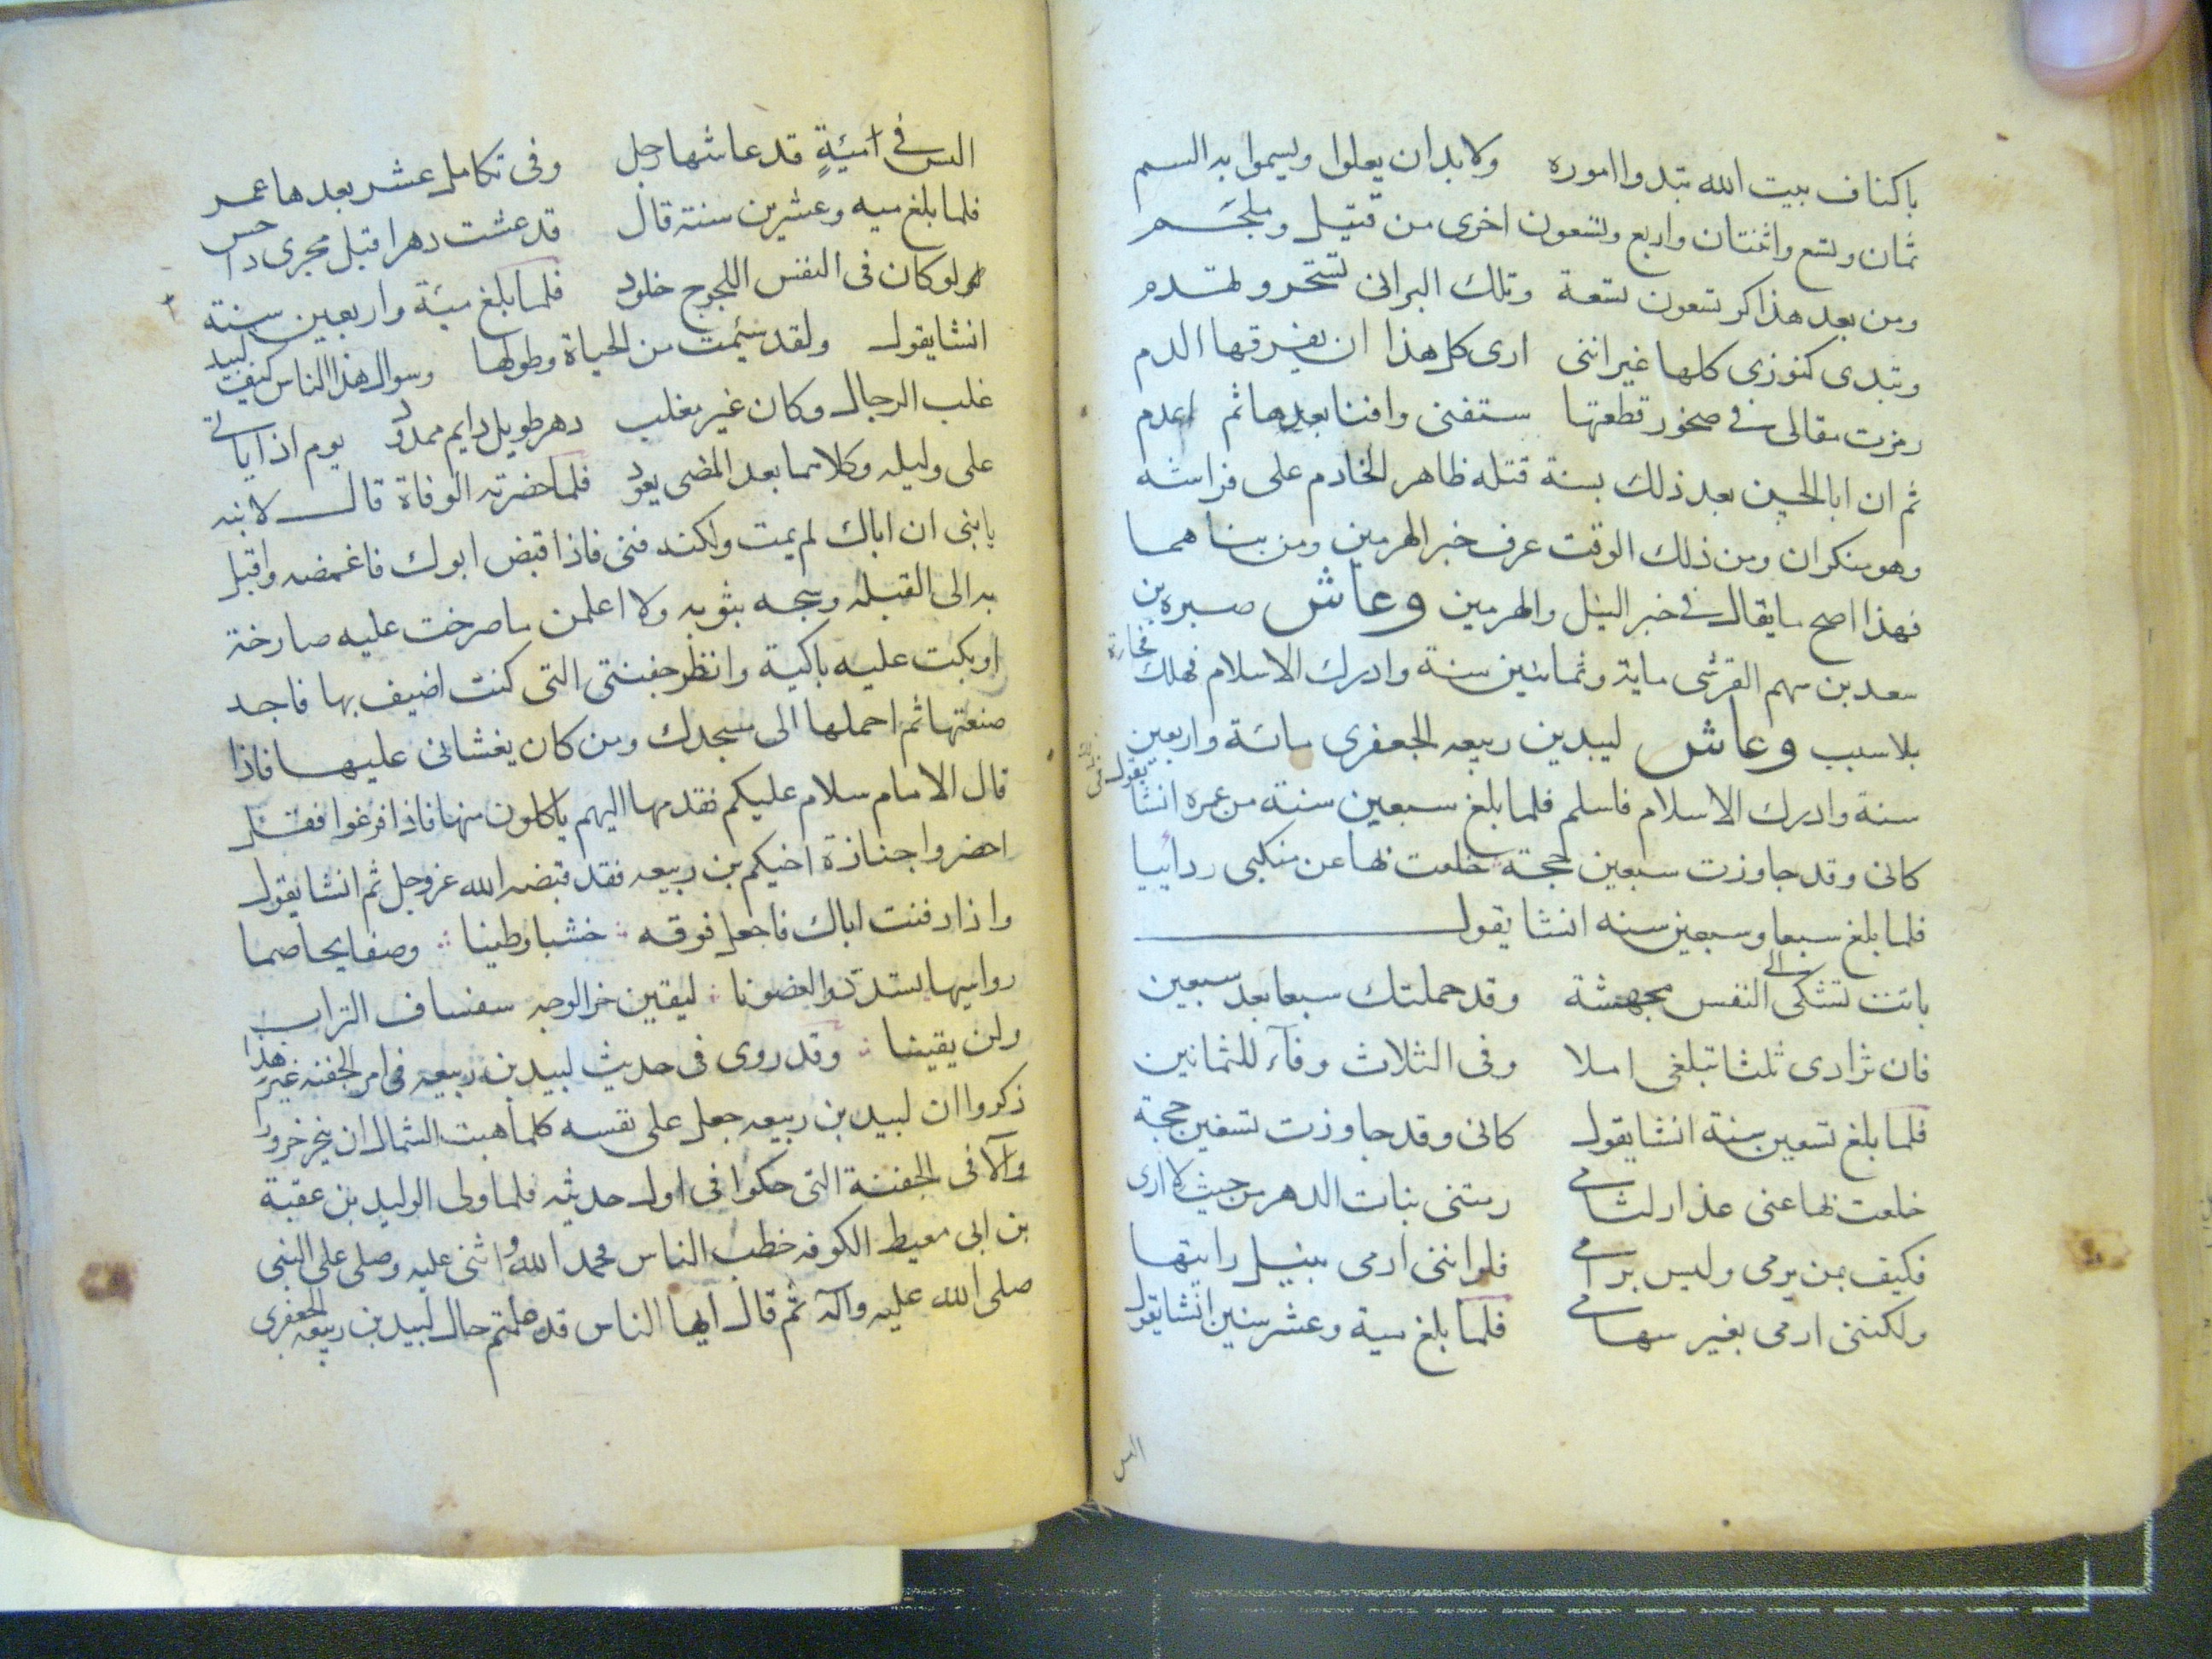 باكناف بيت الله تبدوا اموره ولا بد ان يعلوا ويسموا به السم
ثمان وتسع واثنتان واربع وتسعون اخرى من قتيل وملجم
ومن بعد هذا كر تسعون تسعة وتلك البرانى تستخر وتهدم
وتبدى كنوزى كلها غير اننى ارى كل هذا ان يفرقها الدم
رمزت مقالى فى صخور قطعتها ستفنى وافنا بعدها ثم اعدم
ثم ان ابا الجيش بعد ذلك بسنة قتله طاهر الخادم على فراشه
وهو سكران ومن ذلك الوقت عرف خبر الهرمين ومن بناهما
فهذا اصح ما يقال فى خبر النيل والهرمين وعاش صبره بن
سعد بن سهم القرشى ماية وثمانين سنة وادرك الاسلام فهلك فجاة
بلا سبب وعاش لبيد بن ربيعه الجعفرى مائة واربعين
سنة وادرك الاسلام فاسلم فلما بلغ سبعين سنة من عمره انشا يقول
كانى وقد جاوزت سبعين حجة خلعت بها عن منكبى ردائيا
فلما بلغ سبعا وسبعين سنه انشا يقول
باتت تشكى الى النفس مجهشة وقد حملتك سبعا بعد سبعين
فان تزادى ثلثا تبلغى املا وفى الثلاث وفآء للثمانين
فلما بلغ تسعين سنة انشا يقول كانى وقد جاوزت تسعين حجة
خلعت بها عنى عذار لثامى رمتنى بنات الدهر من حيث لا ارى
فكيف بمن يرمى وليس برامى فلو اننى ارمى بنبل رايتها
ولكننى ارمى بغير سهامى فلما بلغ مية وعشر سنين انشا يقول
اليس
اليس فى امئيةٍ قد عاشها رجل وفى تكامل عشر بعدها عمر
فلما بلغ ميه وعشرين سنة قال قد عشت دهرا قبل مجرى داحس
لو كان فى النفس اللجوج خلود فلما بلغ مئة واربعين سنة
انشا يقول ولقد سئمت من الحياة وطولها وسوال هذا الناس كيف لبيد
غلب الرجال وكان غير مغلب دهر طويل دايم ممدود يوم اذا ياتى
على وليله وكلاهما بعد المضى يعود فلما حضرته الوفاة قال لابنه
يابنى ان اباك لم يمت ولكنه فنى فاذا قبض ابوك فاغمضه واقبل
به الى القبله وسجه بثوبه ولا اعلمن ما صرخت عليه صارخة
او بكت عليه باكية وانظر جفنتى التى كنت اضيف بها فاجد
صنعتها ثم احملها الى مسجدك ومن كان يغشانى عليها فاذا
قال الامام سلام عليكم فقدمها اليهم ياكلون منها فاذا فرغوا فقل
احضروا جنازة اخيكم بن ربيعه فقد قبضه الله عز وجل ثم انشا يقول
واذا دفنت اباك فاجعل فوقه خشبا وطينا وصفايحا صما
رواسيها تسددن الغضونا ليقين حر الوجه سفساف التراب
ولن يقينا وقد روى فى حديث لبيد بن ربيعه فى امر الجفنه غير هذا
ذكروا ان لبيد بن ربيعه جعل على نفسه كلما هبت الشمال ان ينحر جزورا
فى الجفنة التى حكوا فى اول حديثه فلما ولى الوليد بن عقبة
بن ابى معيط الكوفه خطب الناس فحمد الله واثنى عليه وصلى على النبى
صلى الله عليه وآله ثم قال ايها الناس قد علمتم حال لبيد بن ربيعه الجعفرى